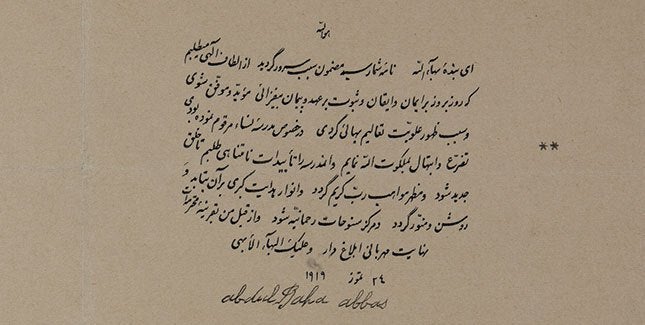 هوالله
ای بندهٔ بهآءالله نامهٔ شما رسید مضمون سبب سرور گردید از الطاف الهی میطلبم
که روز بروز بر ایمان و ایقان و ثبوت بر عهد و پیمان بیفزائی مؤید و موفق شوی
و سبب ظهور علویت تعالیم بهائی گردی در خصوص مدرسهٔ نساء مرقوم نموده بودی
تضرع و ابتهال بملکوت الله نمایم و المدرسه را تأییدات نامتناهی طلبم تا خلق
جدید شود و مظهر مواهب رب کریم گردد و انوار هدایت کبری بر آن بتابد و
روشن و منور گردد و مرکز سنوحات رحمانیه شود و از قبل من
نهایت مهربانی ابلاغ دار و علیک البهآء الأبهی
**
٢٤ تموز ١٩١٩
abdul Baha abbas